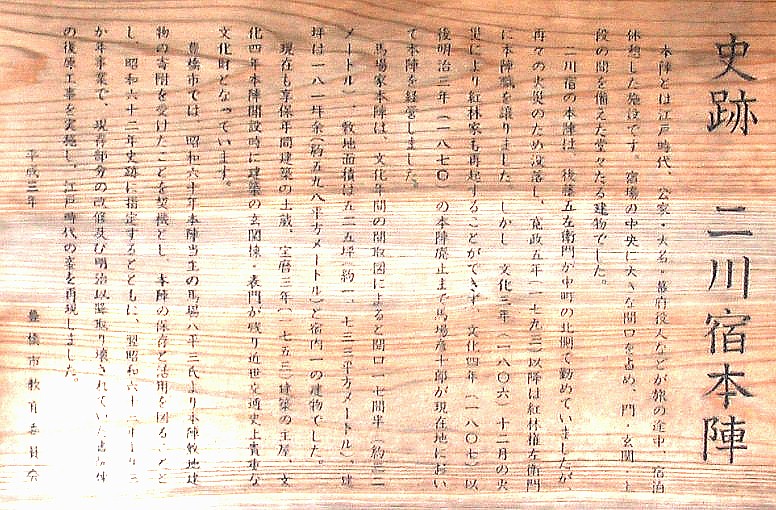 史跡 二川宿本陣
本陣とは江戸時代、公家・大名・幕府役人などが旅の途中、宿泊
休憩した施設です。宿場の中央に大きな間口を占め、門・玄関・上
段の間を備えた堂々たる建物でした。
二川宿の本陣は、後藤五左衛門が中町の北側で勤めていましたが
再々の火災のため没落し、寛政五年(一七九三)以降は紅林権左衛門
に本陣職を譲りました。しかし、文化三年(一八〇六)十二月の火
災により紅林家も再起することができず、文化四年(一八〇七)以
後明治三年(一八七〇)の本陣廃止まで馬場彦十郎が現在地におい
て本陣を経営しました。
馬場家本陣は、文化年間の間取図によると間口一七間半(約三二
メートル)、敷地面積は五二五坪(約一、七三三平方メートル)、建
坪は一八一坪余(約五九八平方メートル)と宿内一の建物でした。
現在も享保年間建築の土蔵、宝暦三年(一七五三)建築の主屋、文
化四年本陣開設時に建築の玄関棟・表門が残り近世交通史上貴重な
文化財となっています。
豊橋市では、昭和六十年本陣当主の馬場八平三氏より本陣敷地建
物の寄附を受けたことを契機とし、本陣の保存と活用を図ることと
し、昭和六十二年史跡に指定するとともに、翌昭和六十三年より三
か年事業で、現存部分の改修及び明治以降取り壊されていた書院棟
の復原工事を実施し、江戸時代の姿を再現しました。
平成三年
豊橋市教育委員会